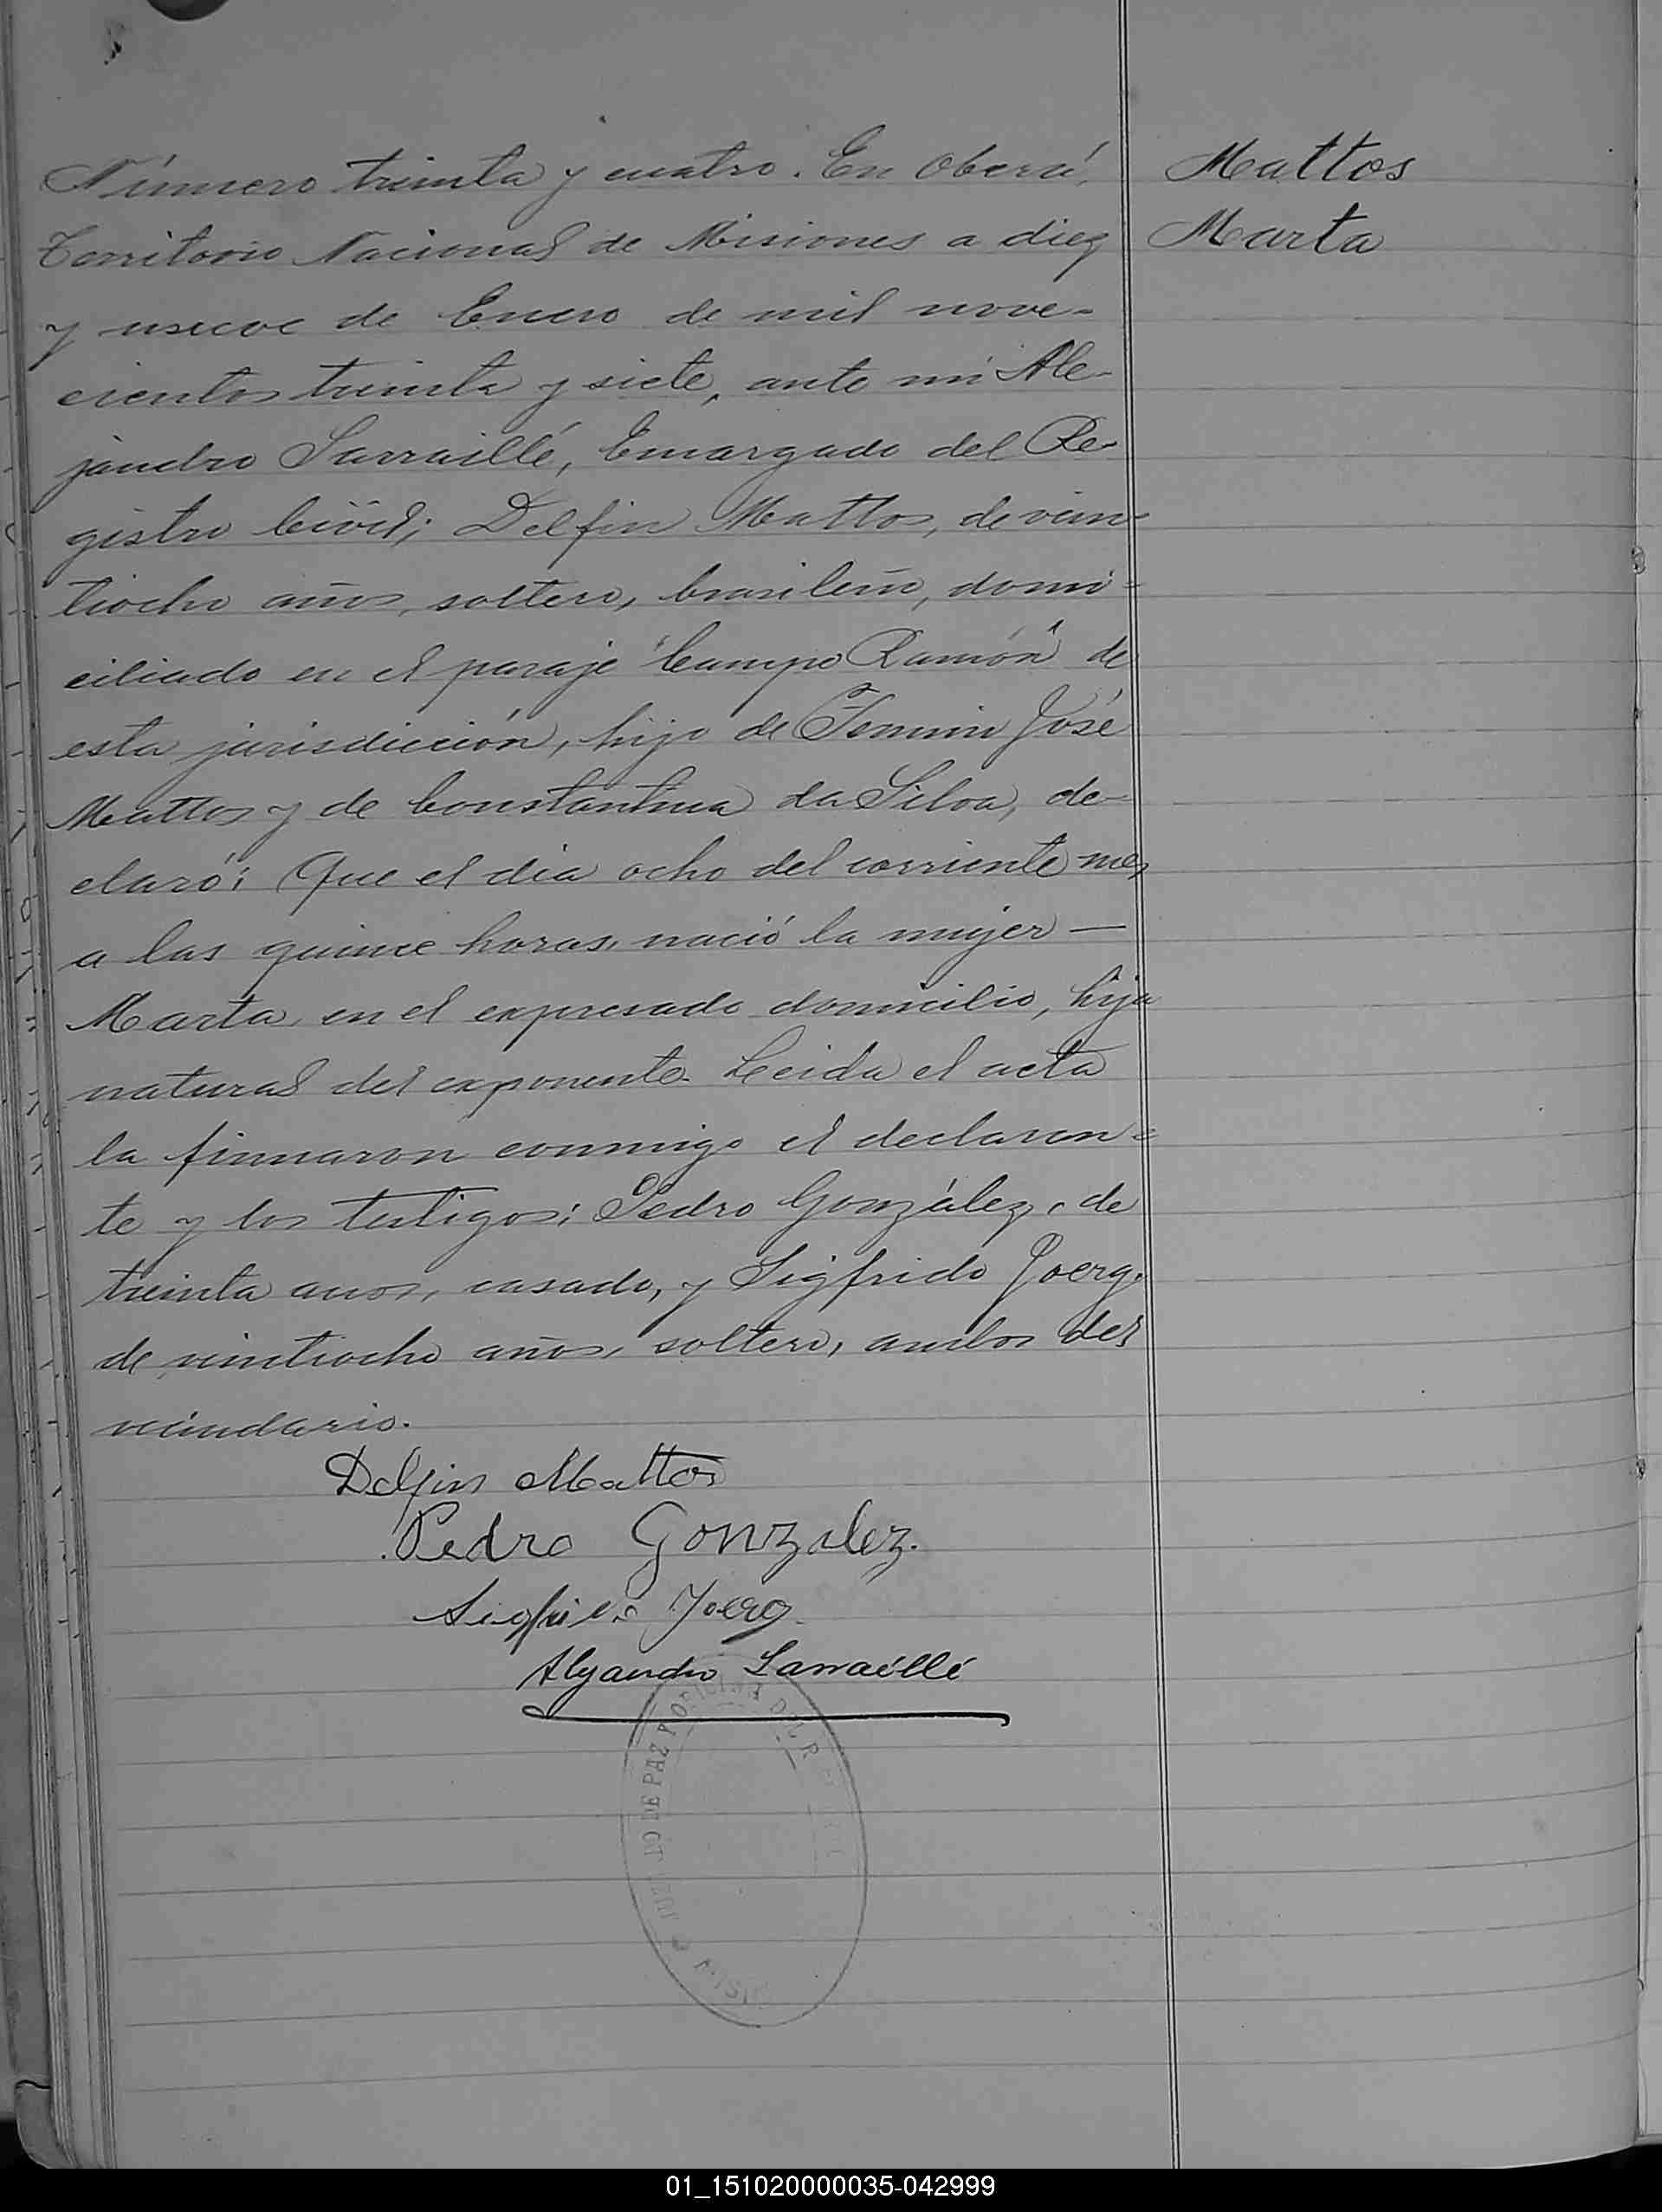 Número treinta y cuatro. En Oberá,
Territorio Nacional de Misiones a diez
y nueve de Enero de mil nove-
cientos treinta y siete, ante mí Ale-
jandro Sarraillé, Encargado del Re-
gistro Civil; Delfin Mattos, de vein-
tiocho años, soltero, brasileño, domi-
ciliado en el paraje "Campo Ramón" de
esta jurisdicción, hijo de Fermin José
Mattos y de Constantina da Silva, de-
claró: Que el día ocho del corriente mes,
a las quince horas, nació la mujer —
Marta, en el expresado domicilio, hija
natural del exponente. Leida el acta
la firmaron conmigo el declaran-
te y los testigos: Pedro González, de
treinta anos, casado, y Sigfrido Joerg,
de veintiocho años, soltero, ambos del
vecindario.
Mattos
Marta
Delfin Mattos
Pedro Gonzalez.
Sigfrido Joerg
Alejandro Sarraillé
DE PAZ Y OFICINA DEL R
01_151020000035-042999